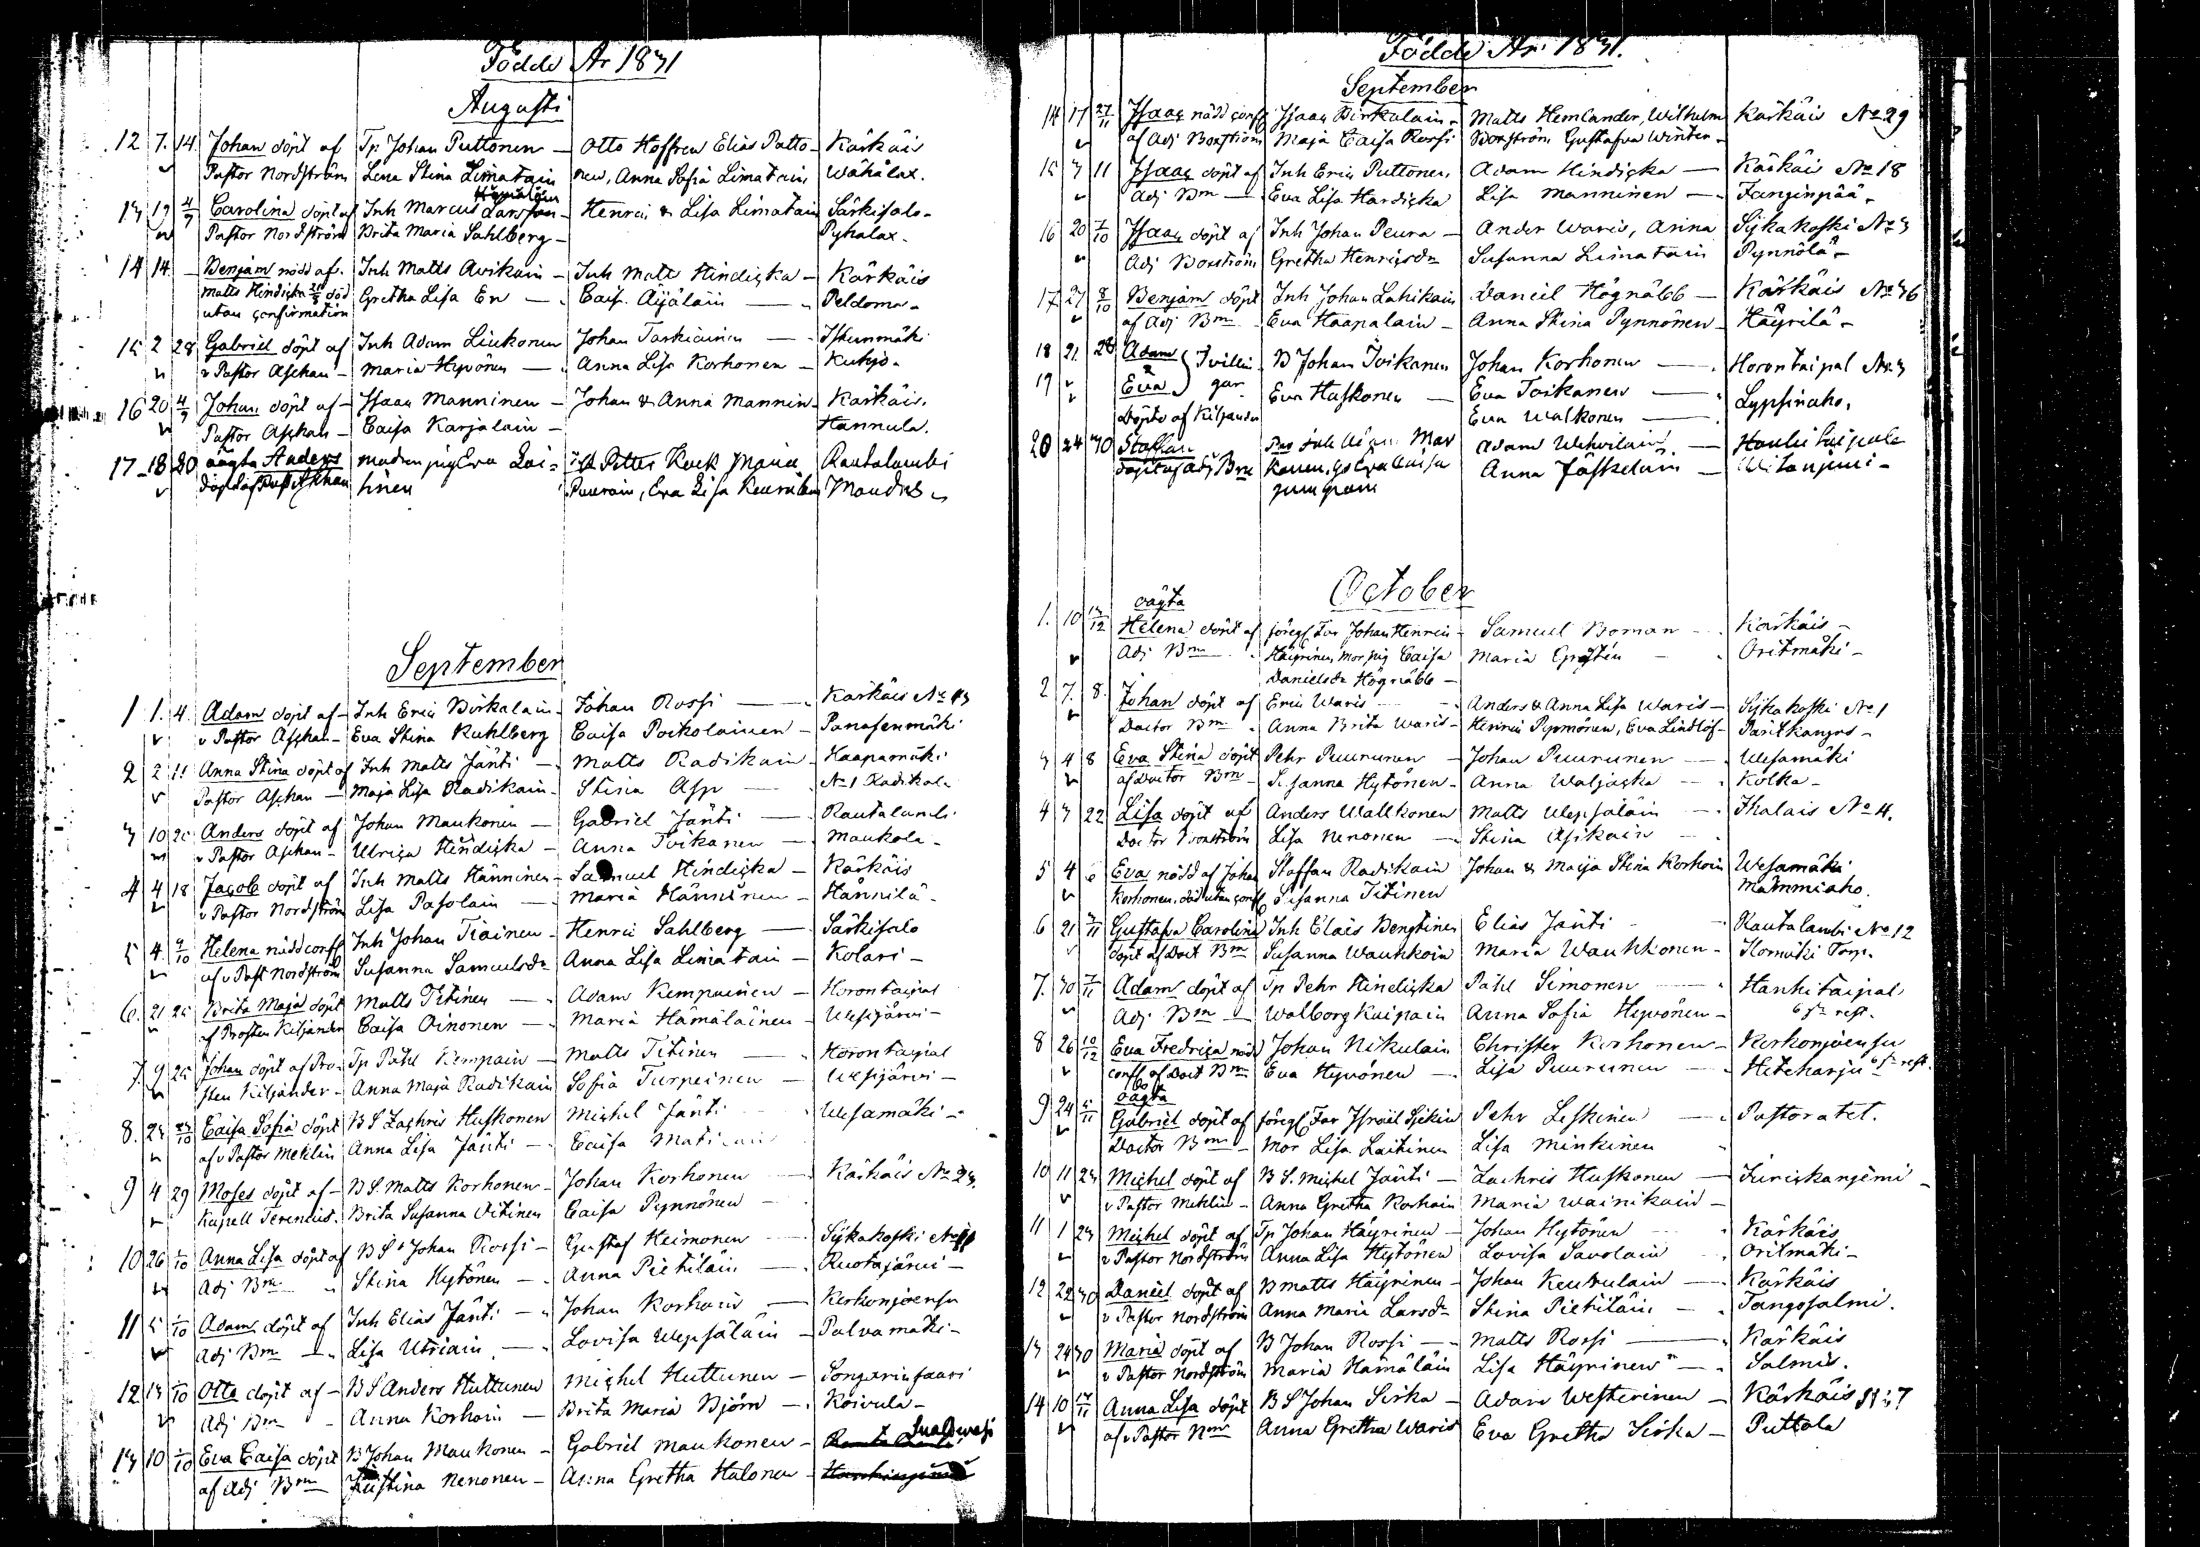 Födde År 1831
Augusti
12 7. 14 Johan döpt af Tp. Johan Puttonen — Otto Hoffren Elias Putto- Kärkäis
Pastor Nordström Lena Stina Limatain nen, Anna Sofia Limatain Wähälax.
Hämäläin
13 19 4/9 Carolina döpt af Inh Marcus Larsson — Henric & Lisa Limatain Särkisalo-
Pastor Nordström Brita Maria Sahlberg — Pyhälax.
14 14 — Benjam nödd af. Inh Matts Avikain — Inh Matts Hindicka — Kärkäis
Matts Hindicka död Gretha Lisa En — Caisa Äijäläin — Peldoma-
utan confirmation
15 2 28 Gabriel döpt af Inh Adam Liukonen Johan Tarkiainen —
v Pastor Aschan — Maria Hyvönen — Anna Lisa Korhonen — Kukjo-
16 20 4/9 Johan döpt af — Isaac Manninen — Johan & Anna Mannin Kärkäis.
Pastor Aschan — Caisa Karjalain — Hannula.
17 18 30 oägta Anders Eva Lai- Petter Kock Maria Rautalambi
döpt af Past Aschan tinen Puurain, Eva Lisa
September
1 1. 4. Adam döpt af — Inh Eric Pirkalain — Johan Rossi — Kärkäis No 13
v Pastor Aschan — Eva Stina Kuhlberg Caisa Poikolainen — Panasenmäki
2 2 11 Anna Stina döpt af Inh Matts Jänti — Matts Radikain — Haapamäki
Pastor Aschan — Maja Lisa Radikain — Stina Asp — No 1 Radikal-
3 10 25 Anders döpt af Johan Maukonen — Gabriel Jänti — Rautalambi
v Pastor Aschan — Ulrica Hindicka — Anna Toikanen — Maukola-
4 4 18 Jacob döpt af Inh Matts Hänninen — Samuel Hindicka — Kärkäis
v Pastor Nordström Lisa Pasolain — Maria Hänninen — Hännilä-
5 4. 9/10 Helena nödd conff Inh Johan Tiainen — Henric Sahlberg — Särkisalo
af v Past Nordström Susanna Samuelsdr Anna Lisa Limatain — Kolari —
6. 21 25 Brita Maja döpt Matts Titinen — Adam Kempainen — Horontaipal
af Prosten Kiljander Caisa Oinonen — Maria Hämäläinen — Wesijärvi —
7. 9 25 Johan döpt af Pro- Tp Påhl Kempain — Matts Titinen — Horontaipal
sten Kiljander — Anna Maja Radikain Sofia Turpeinen — Wesijärvi —
8. 23 Caisa Sofia döpt B S Zachris Huskonen Michel Jänti Wesamäki —
af v Pastor Meklin Anna Lisa Jänti — Caisa
9 4 29 Moses döpt af — B S. Matts Korhonen — Johan Korhonen — Kärkäis No 23.
Kapell Terenius. Brita Susanna Titinen Caisa Pynnönen —
10 26 1/10 Anna Lisa döpt af B Sn Johan Rossi — Gustaf Heimonen — Sijkakoski No 11
Adj Bm Stina Hytönen — Anna Pietiläin — Ruotajärvi —
11 5 1/10 Adam döpt af Inh Elias Jänti — Johan Korhoin — Kerkonjoensu
Adj Bm — Lisa Utriain — Lovisa Wepsäläin — Palvamäki —
12 13 1/10 Otto döpt af — B S Anders Huttunen Michel Huttunen — Songarinsaari
Adj Bm — Anna Korhoin — Brita Maria Björn — Koivula —
13 10 1/10 Eva Caisa döpt B Johan Maukonen — Gabriel Maukonen —
af Adj Bm Justina Nenonen — Anna Gretha Halonen —
Födde År: 1831.
September
14 17 27/11 Isaac nödd conff Isaac Pirkalain — Matts Hemlander, Wilhelm Kärkäis No 29
af Adj Boxström Maja Caisa Rossi Boxström Gustafva Winter-
15 3 11 Isaac döpt af Inh Eric Puttonen Adam Hindicka — Kärkäis No 18
Adj Bm — Eva Lisa Hardicka Lisa Manninen — Fanginpää-
16 20 7/10 Isaac döpt af Inh Johan Peura — Ander Waris, Anna Sijkakoski No 3
Adj Boxström Gretha Henricsdr Susanna Limatain Pynnölä —
17 27 8/10 Benjam döpt Inh Johan Lahikain Daneil Högnäbb — Kärkäis No 36
af Adj Bm Eva Haapalain — Anna Stina Pynnönen — Häyrilä —
18 21 28 Adam Tvillin- B Johan Toikanen Johan Korhonen — Horontaipal No 3
19 & Eva gar Eva Huskonen — Eva Toikanen — Lypsinaho.
Döpte af Kiljander Eva Walkonen —
20 24 30 Staffan Adam Wehvilain — Hankitaipale
döpt af Adj Bm Anna Jäskeläin —
October
oägta
1. 10 Helena döpt af föregf Far Johan Henrics- Samuel Boman — Kärkäis —
Adj Bm Häyrinen, Mor pig Caisa Maria — Oritmäki —
Danielsdr Högnäbb —
2 7. 8. Johan döpt af Eric Waris — Anders & Anna Lisa Waris — Sijkakoski No 1
Doctor Bm Anna Brita Waris — Henric Pynnönen, Eva Lindlöf — Paritkangas —
3 4 8 Eva Stina döpt Pehr Puurunen — Johan Puurunen — Wesamäki
af Doctor Bm — Susanna Hytönen — Anna Waljacka — Kolka —
4 3 22 Lisa döpt af Anders Wallkonen Matts Wepsäläin — Ihalais No 4.
Doctor Boxström Lisa Nenonen — Stina Asikain
5 4 6 Eva nödd af Johan Staffan Radikain Johan & Maija Stina Korhoin Wesamäki
Korhonen, död utan conff Susanna Titinen Mammiaho.
6 21 Gustafva Carolina Inh Elias Bengtinen Elias Jänti — Rautalambi No 12
döpt af Doct Bm Susanna Wauhkoin Maria Wauhkonen — Torp.
7. 30 7/11 Adam döpt af Tp Pehr Hindicka Påhl Simonen — Hankitaipal
Adj Bm — Walborg Kuipain Anna Sofia Hyvönen —
8 26 10/12 Eva Fredrica nödd Johan Nikulain Christer Korhonen — Kerkonjoensu
conff af Doct Bm Eva Hyvönen — Lisa Puurunen — Heteharju
oägta
9 24 Gabriel döpt af föregf Far Israel Sjekin Pehr Leskinen — Pastoratet.
Doctor Bm — Mor Lisa Laitinen Lisa Minkinen
10 11 23 Michel döpt af B S. Michel Jänti — Zachris Huskonen —
v Pastor Meklin — Anna Gretha Korhoin Maria Wainikain —
11 1 23 Michel döpt af Tp Johan Häyrinen — Johan Hytönen Kärkäis
v Pastor Nordström Anna Lisa Hytönen Lovisa Savolain Oritmäki —
12 22 30 Daneil döpt af B Matts Häyrinen — Johan Keurulain — Kärkäis
v Pastor Nordström Anna Maria Larsdr Stina Pietiläin — Tangosalmi.
13 24 30 Maria döpt af B Johan Rossi — Matts Rossi — Kärkäis
v Pastor Nordström Maria Hämäläin Lisa Häyrinen — Salmis.
14 10 Anna Lisa döpt B S Johan Sirka — Adam Westerinen — Kärkäis
af v Pastor Nm Anna Gretha Waris Eva Gretha Sirka — Puttola